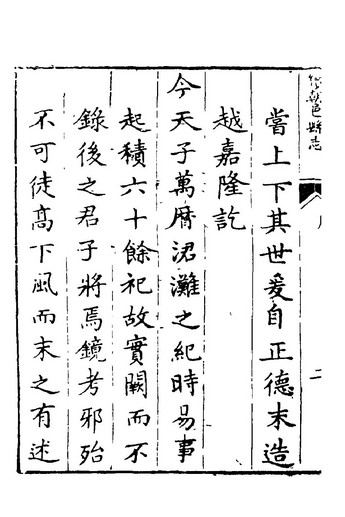 當上下其世爰自正德末造
越嘉隆訖
今天子萬曆涒灘之紀時易事
起積六十餘祀故實闕而不
錄後之君子將焉鏡考邪殆
不可徒高下風而末之有述